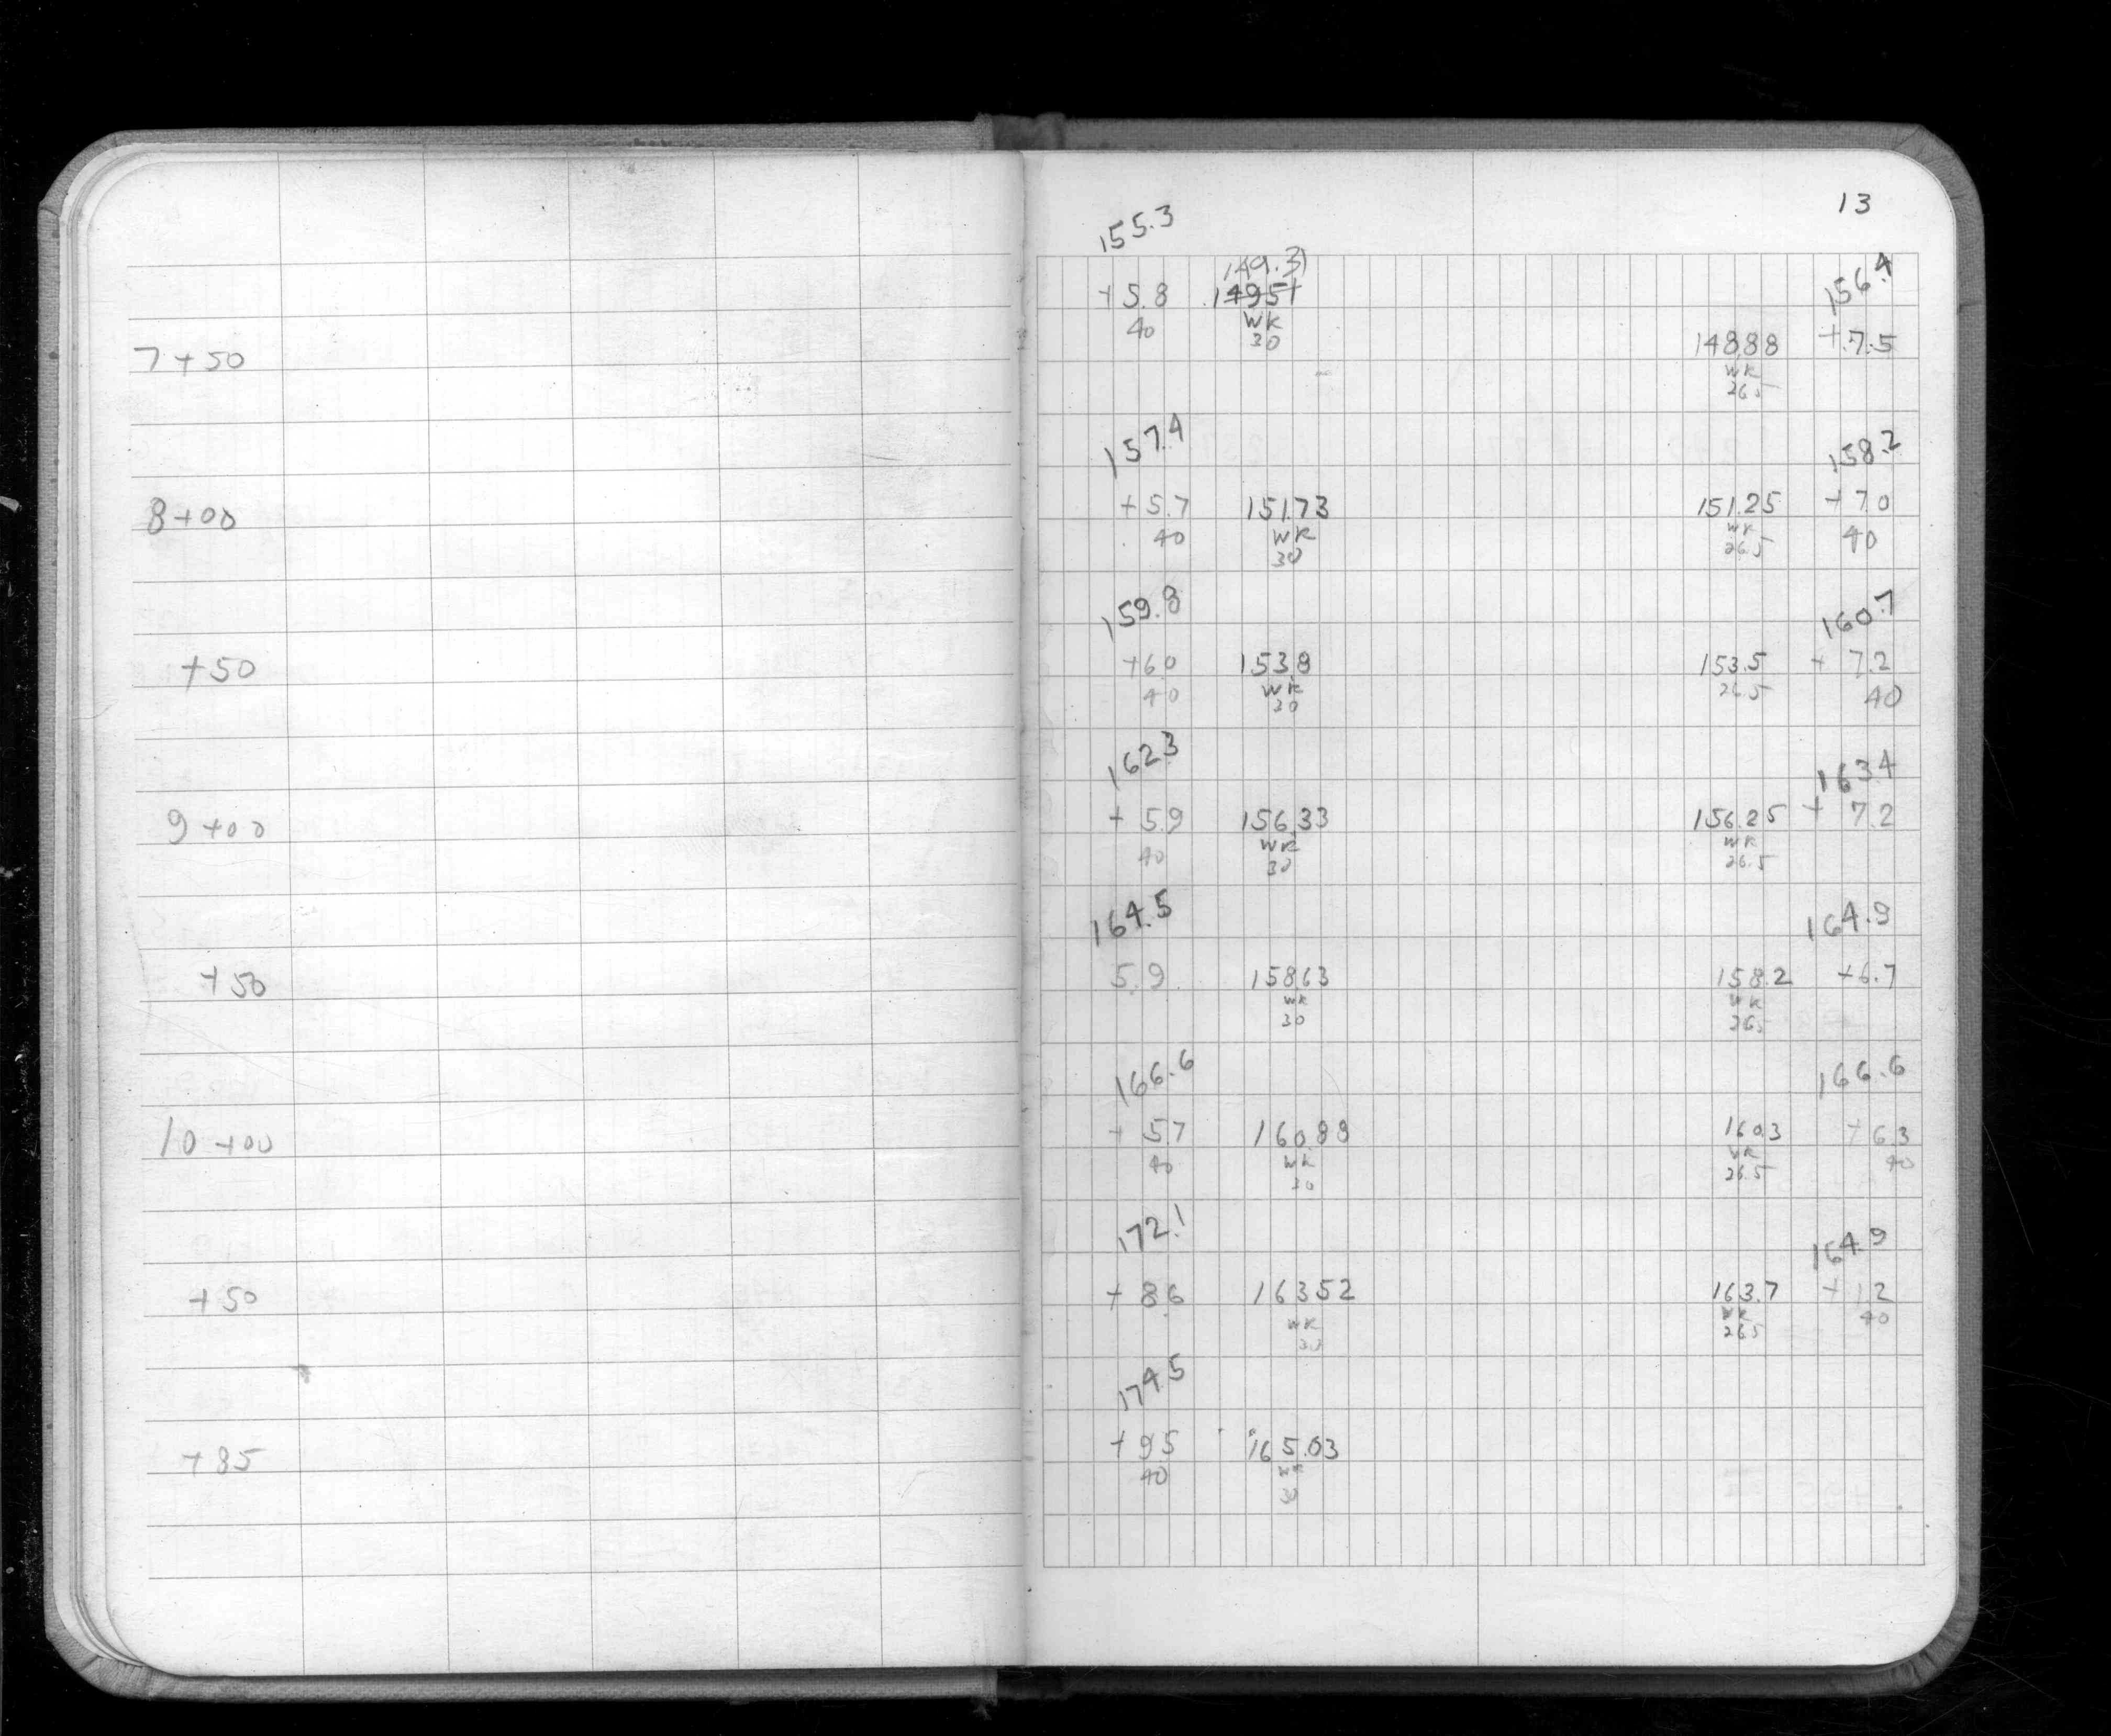 13
155.3
149.31
+5.8 14951 156.4
40 WK 148.88 +7.5
7+50 30 WK
26.5
157.4 158.2
8+00 +5.7 151.73 151.25 +7.0
40 WK WK 40
30 26.5
159.8 160.7
+50 +6.0 153.8 153.5 + 7.2
40 WK 26.5 40
30
162.3 163.4
9+00 +5.9 156.33 156.25 + 7.2
40 WK WK
30 26.5
164.5 164.9
+50 5.9 158.63 158.2 +6.7
WK WK
30 26.5
166.6 166.6
10+00 + 5.7 160.88 160.3 +6.3
40 WK WK 40
30 26.5
172.1 164.9
+50 + 8.6 163.52 163.7 + 1.2
WK WK 40
30 26.5
174.5
+85 + 9.5 165.03
40 WK
30